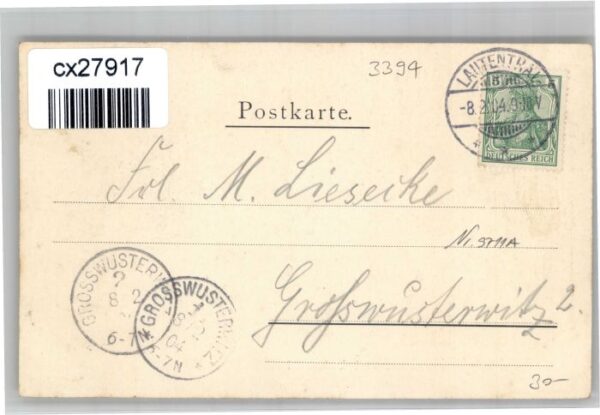 cx27917
3394
LAUTENTHAL
-8.2.04.9-10V
DEUTSCHES REICH
Postkarte.
Frl. M. Liesecke
GROSSWUSTERWITZ
8 2
6-7N
GROSSWUSTERWITZ
8 2
04
6-7N
Grosswusterwitz
30-